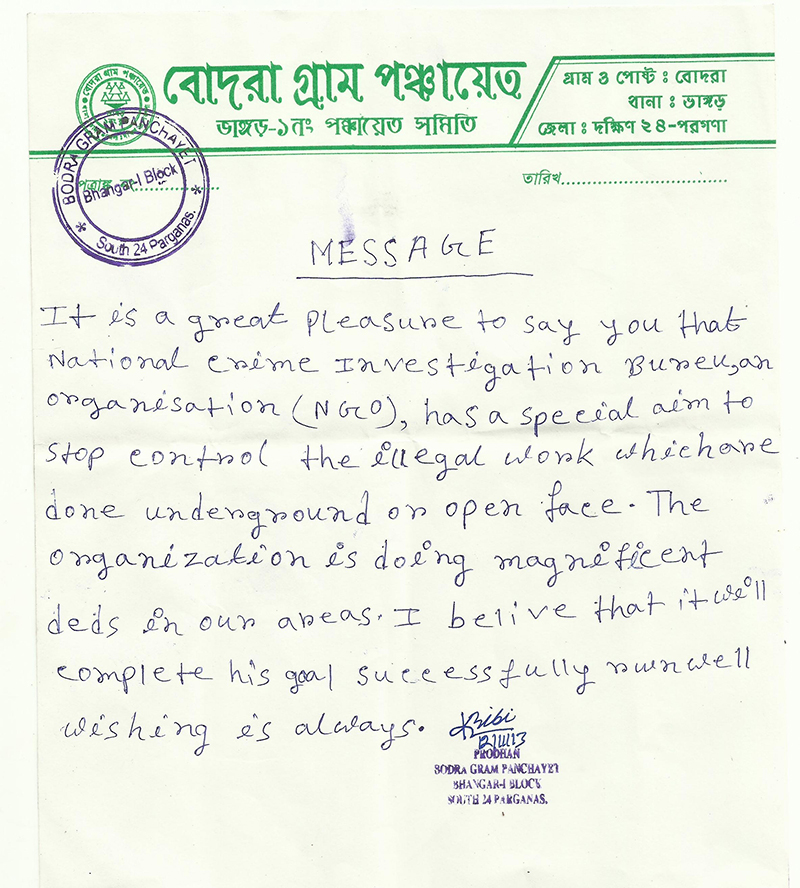 বোদরা গ্রাম পঞ্চায়েত
বোদরা গ্রাম পঞ্চায়েত
ভাঙ্গড়-১নং পঞ্চায়েত সমিতি
গ্রাম ও পোষ্ট : বোদরা
থানা : ভাঙ্গড়
জেলা : দক্ষিণ ২৪-পরগণা
BODRA GRAM PANCHAYET
Bhangar-I Block
* South 24 Parganas. *
পত্রাঙ্ক নং
তারিখ
MESSAGE
It is a great pleasure to say you that
National crime Investigation Bureu, an
organisation (NGO), has a special aim to
stop control the illegal work which are
done underground or open face. The
organization is doing magnificent
deds in our areas. I belive that it will
complete his goal successfully well
wishing is always.
Bibi
12/11/13
PRODHAN
BODRA GRAM PANCHAYET
BHANGAR-I BLOCK
SOUTH 24 PARGANAS.